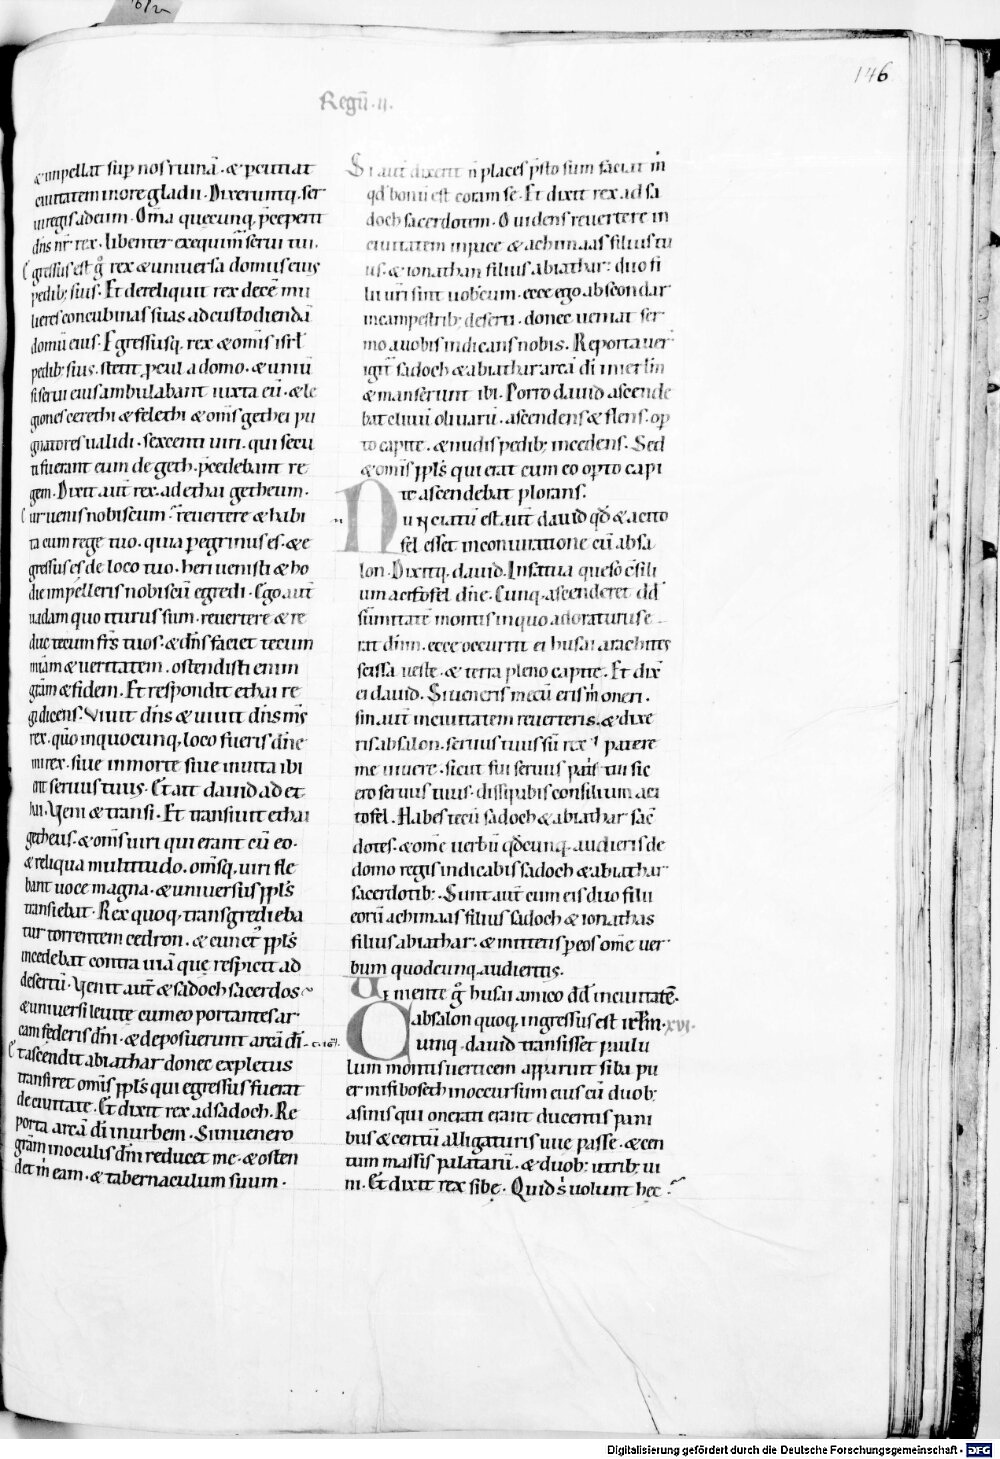 146
Regũ · ii ·
& impellat sup nos ruinã · & pcutiat
ciuitatem in ore gladii · Dixeruntq; ser
ui regis ad eum · Oma quecunq; pceperit
dñs nr rex · libenter exequimr serui tui ·
Egressus est g rex & uniuersa domus eius
pedib; suis · Et dereliquit rex decẽ mu
lieres concubinas suas ad custodiendã
domũ eius · Egressusq; rex & omis isrl
pedib; suis · stetit pcul a domo · & uniũ
si serui eius ambulabant iuxta eũ · & le
giones cerethi & felethi & oms gethei pu
gnatores ualidi · sexcenti uiri · qui secu
ti fuerant eum de geth · pcedebant re
gem · Dixit aut rex · ad ethai getheum ·
Cur uenis nobiscum? reuertere & habi
ta cum rege tuo · quia pegrinus es · & e
gressus es de loco tuo · heri uenisti & ho
die impelleris nobiscũ egredi · Ego aut
uadam quo iturus sum · reuertere & re
duc tecum frs tuos · & dñs faciet tecum
miam & ueritatem · ostendisti enim
gram & fidem · Et respondit ethai re
gi dicens · Viuit dñs & uiuit dñs ms
rex · qm in quocunq; loco fueris dñe
mi rex · siue in morte siue in uita ibi
erit seruus tuus · Et ait dauid ad et
hai · Veni & transi · Et transiuit ethai
getheus · & oms uiri qui erant cũ eo ·
& reliqua multitudo · omsq; uiri fle
bant uoce magna · & uniuersus ppls
transiebat · Rex quoq; transgredieba
tur torrentem cedron · & cunct ppls
incedebat contra uiã que respicit ad
desertũ · Venit aut & sadoch sacerdos
& uniuersi leuite cum eo portantes ar
cam federis dñi · & deposuerunt arcã di
Et ascendit abiathar donec expletus
transiret omis ppls qui egressus fuerat
de ciuitate · Et dixit rex ad sadoch · Re
porta arcã di in urbem · Si inuenero
gram in oculis dñi reducet me · & osten
det m eam · & tabernaculum suum ·
Si aut dixerit n places psto sum faciat m
qd bonũ est coram se · Et dixit rex ad sa
doch sacerdotem · O uidens reuertere in
ciuitatem in pace & achimaas filius tu
us · & ionathan filius abiathar · duo fi
lii uri sint uobcum · ecce ego abscondar
in campestrib; deserti · donec ueniat ser
mo a uobis indicans nobis · Reportauer
igit sadoch & abiathar arcã di in ierlm
& manserunt ibi · Porro dauid ascende
bat cliuũ oliuarũ · ascendens & flens · op
to capite · & nudis pedib; incedens · Sed
& omis ppls qui erat cum eo opto capi
te ascendebat plorans ·
Nunciatũ est aut dauid qd & acito
fel esset in coniuratione cũ absa
lon · Dixitq; dauid · Infatua queso csili
um acitofel dñe · Cunq; ascenderet dd
sũmitate montis in quo adoraturus e
rat dñm · ecce occurrit ei husai arachites
scissa ueste · & terra pleno capite · Et dix
ei dauid · Si ueneris mecũ eris m oneri ·
sin aut in ciuitatem reuerteris · & dixe
ris absalon · seruus tuus sũ rex patere
me uiuere · sicut fui seruus pris tui sic
ero seruus tuus · dissipabis consilium aci
tofel · Habes tecũ sadoch & abiathar sac
dotes · & ome uerbũ qdcunq; audieris de
domo regis indicabis sadoch & abiathar
sacerdotib; · Sunt aut cum eis duo filii
eorũ achimaas filius sadoch & ionathas
filius abiathar · & mittens p eos ome uer
bum quodcunq; audieritis ·
Veniente g husai amico dd in ciuitatẽ ·
absalon quoq; ingressus est irlm · xvi ·
Cumq; dauid transisset paulu
lum montis uerticem apparuit siba pu
er misiboseth in occursum eius cũ duob;
asinis qui onerati erant ducentis pani
bus & centũ alligaturis uue passe · & cen
tum massis palatarũ · & duob; utrib; ui
ni · Et dixit rex sibe · Quid s uolunt hec?
Digitalisierung gefördert durch die Deutsche Forschungsgemeinschaft · DFG